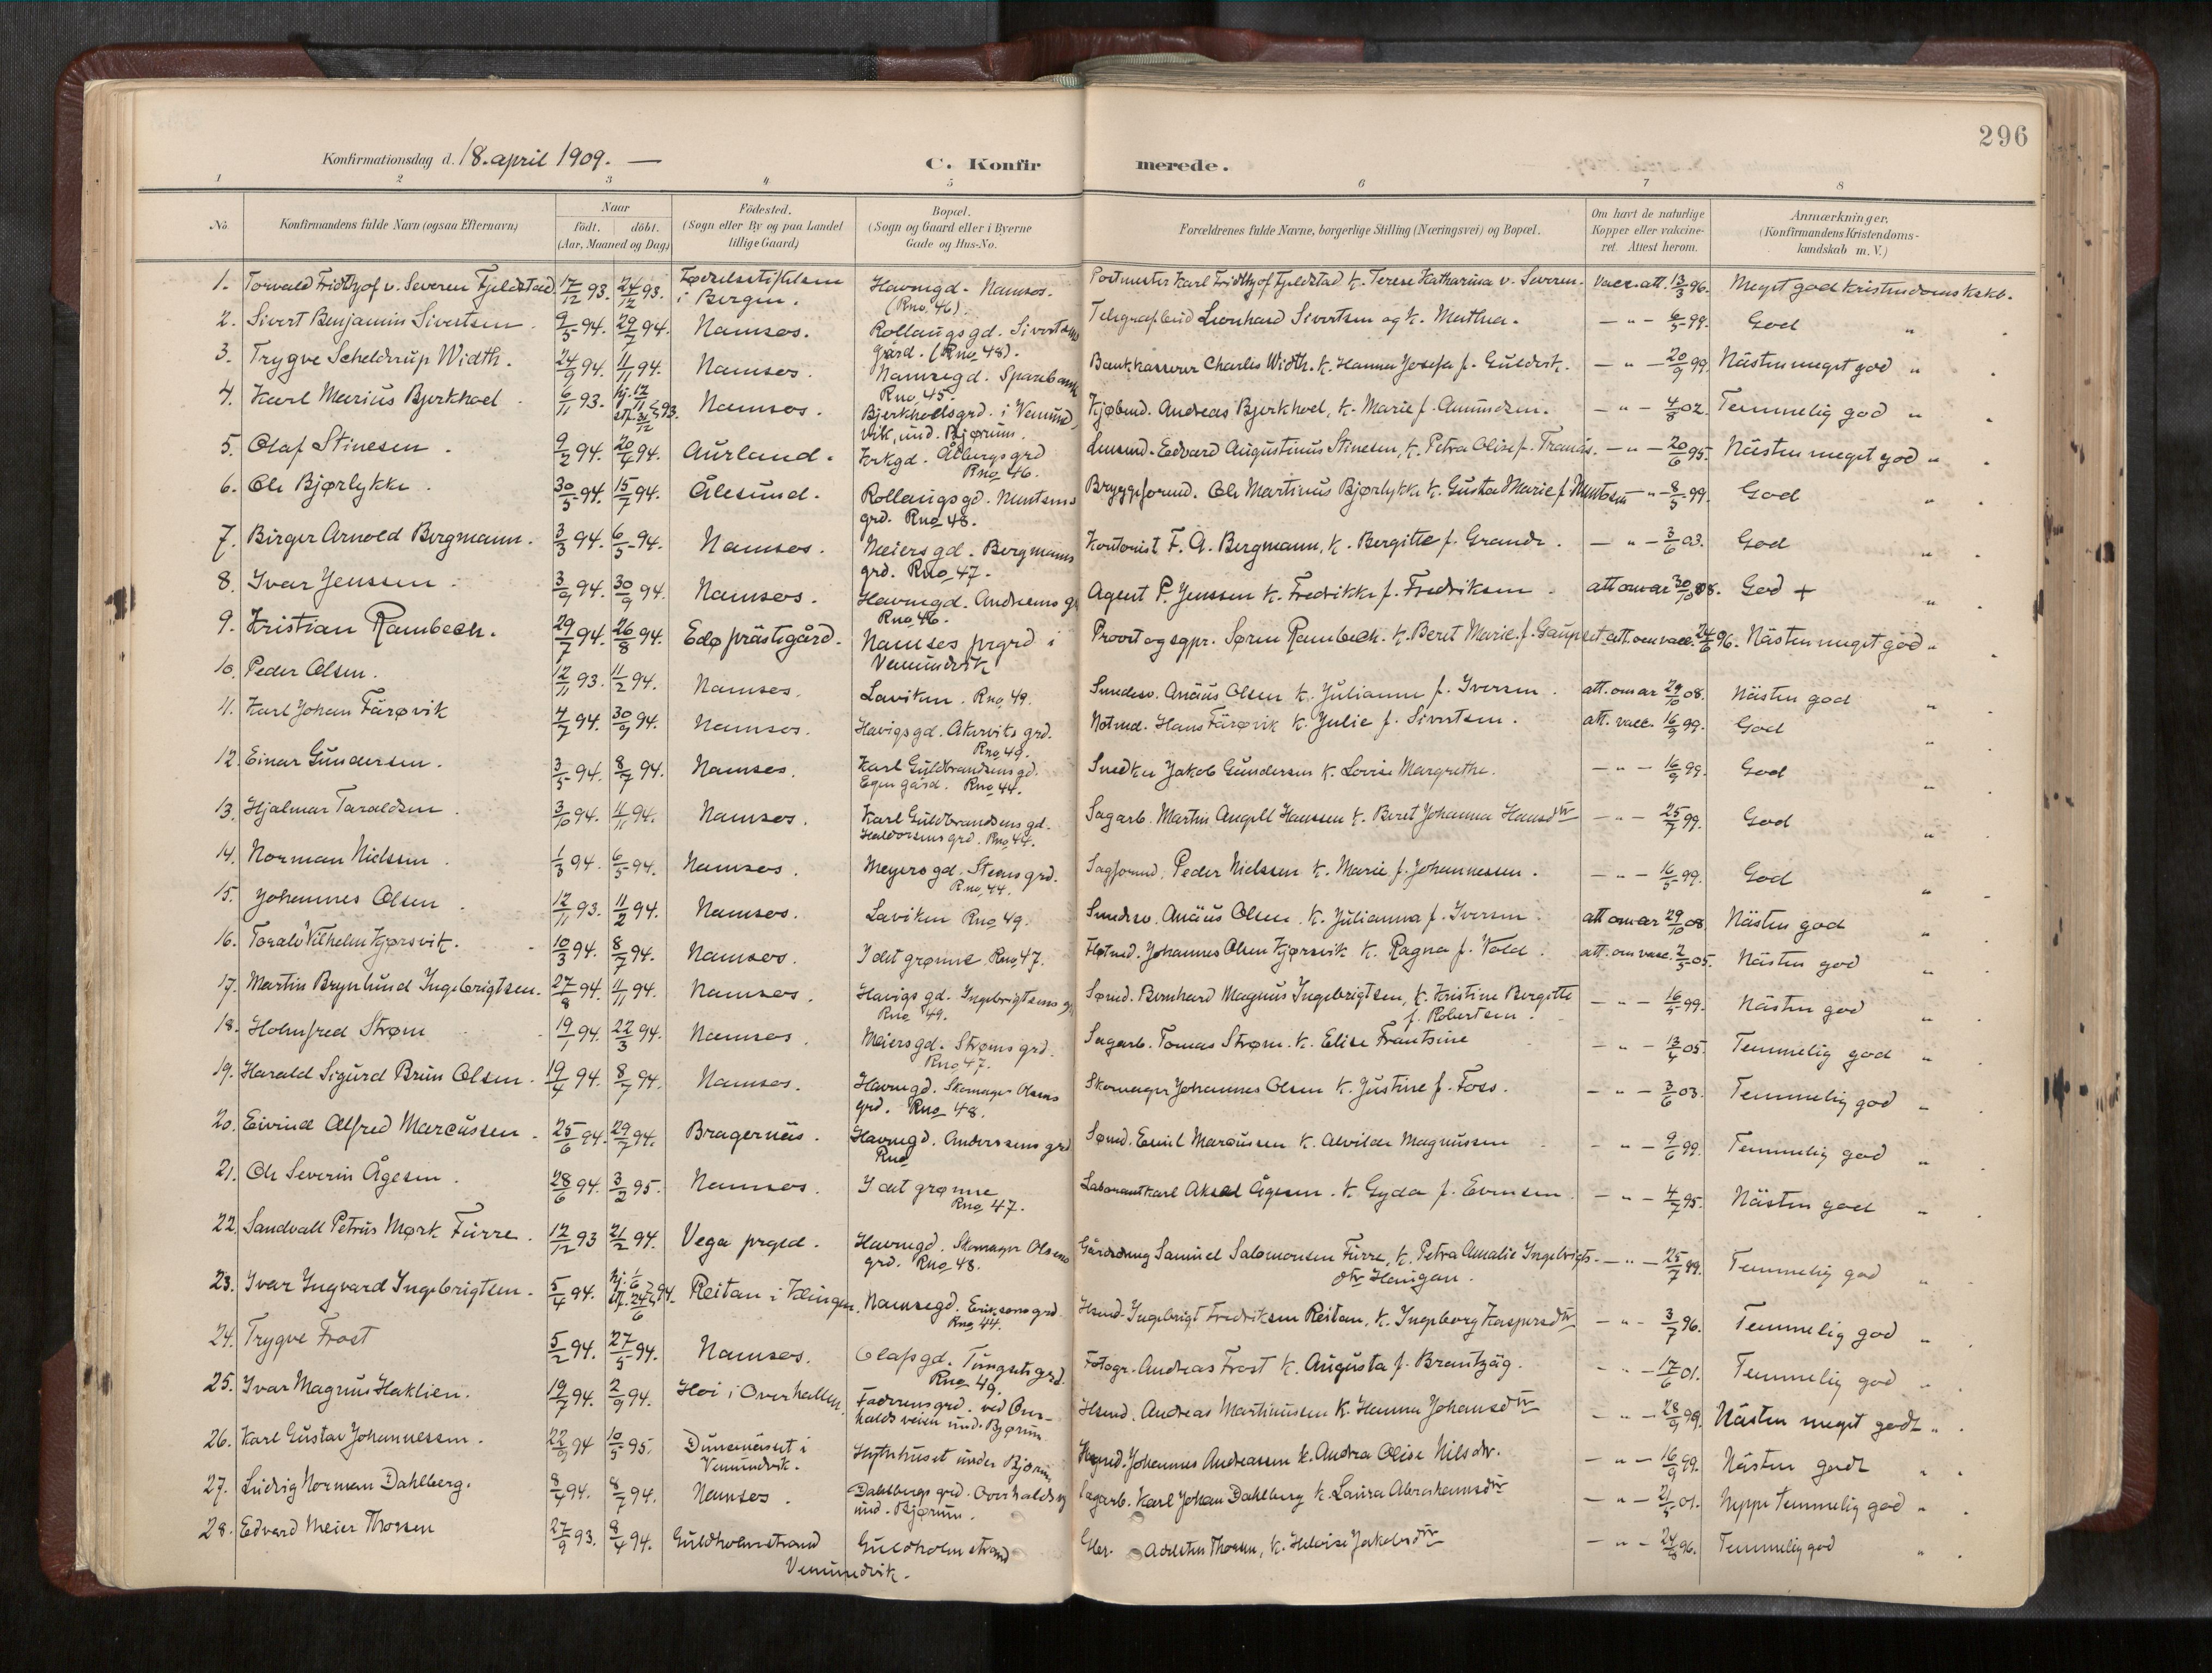 296
Konfirmationsdag d. 18. april 1909. —
C. Konfirmerede.
1 2 3 4 5 6 7 8
No. Konfirmandens fulde Navn (ogsaa Efternavn) Naar födt. döbt. (Aar, Maaned og Dag) Födested. (Sogn eller By og paa Landet tillige Gaard) Bopæl. (Sogn og Gaard eller i Byerne Gade og Hus-No. Forældrenes fulde Navne, borgerlige Stilling (Næringsvei) og Bopæl. Om havt de naturlige Kopper eller vakcineret. Attest herom. Anmærkninger, (Konfirmandens Kristendomskundskab m. V.)
1. Torvald Fridthjof v. Severen Fjeldstad 17/12 93. 24/12 93. Fødselsstiftelsen i Bergen. Havnegd. Namsos. (Rno. 46). Postmester Karl Fridthjof Fjeldstad k. Terese Katharina v. Severen. Vacc. att. 13/3 96. Meget god kristendomskskb.
2. Sivert Benjamin Sivertsen. 9/5 94. 29/7 94. Namsos. Rollaugsgd. Sivertsens gård. (Rno 48). Telegrafbud Leonhard Sivertsen og k. Mathea. — " — 6/5 99. God "
3. Trygve Scheldrup Width. 24/9 94. 11/11 94. Namsos. Namsegd. Sparebank Rno. 45. Bankkasserer Charles Width. k. Hanna Josefa f. Guldvik. — " — 20/9 99. Nästen meget god "
4. Karl Marius Bjerkhoel. 6/11 93. hj. 12/11 stf. 31/12 93. Namsos. Bjerkhoelsgrd. i Vemundvik, und. Bjørum. Kjøbmd. Andreas Bjerkhoel, k. Marie f. Amundsen. — " — 4/8 02. Temmelig god "
5. Olaf Stinesen. 9/2 94. 20/4 94. Aurland. Krkgd. Ålbergsgrd Rno 46. Lensmd. Edvard Augustinus Stinesen, k. Petra Olise f. Tranås. — " — 20/6 95. Nästen meget god "
6. Ole Bjørlykke. 30/5 94. 15/7 94. Ålesund. Rollaugsgd. Mentsens grd. Rno 48. Bryggeformd. Ole Martinus Bjørlykke k. Gusta Marie f. Mentsen — " — 8/5 99. God "
7. Birger Arnold Bergmann. 3/3 94. 6/5 94. Namsos. Meiersgd. Bergmanns grd. Rno 47. Kontorist F. A. Bergmann, k. Bergitte f. Grande. — " — 3/6 03. God "
8. Ivar Jenssen. 3/9 94. 30/9 94. Namsos. Havnegd. Andresens gr Rno 46. Agent P. Jenssen k. Fredrikke f. Fredriksen. att om ar 30/10 08. God + "
9. Kristian Rambech. 29/7 94. 26/8 94. Edø prästegård. Namsos prgrd i Vemundvik Provst og sgpr. Søren Rambech. k. Beret Marie f. Gaupset. att. om vacc. 24/6 96. Nästen meget god "
10. Peder Olsen. 12/11 93. 11/2 94. Namsos. Laviken. Rno 49. Smedsv. Anäus Olsen k. Julianna f. Iversen. att. om ar 29/10 08. Nästen god "
11. Karl Johan Färøvik 4/7 94. 30/9 94. Namsos. Havigsgd. Akervits grd. Rno 49. Notmd. Hans Färøvik k. Julie f. Sivertsen. att. vacc. 16/9 99. God "
12. Einar Gundersen. 3/5 94. 8/7 94. Namsos. Karl Guldbrandsens gd. Egen gård. Rno 44. Snedker Jakob Gundersen k. Lovise Margrethe. — " — 16/9 99. God "
13. Hjalmar Taraldsen. 3/10 94. 4/11 94. Namsos. Karl Guldbrandsens gd. Haldorsens grd. Rno 44. Sagarb. Martin Angell Hanssen k. Beret Johanna Hansdtr — " — 25/7 99. God "
14. Norman Nielssen. 1/3 94. 6/5 94. Namsos. Meyersgd. Stens grd. Rno. 44. Sagformd. Peder Nielssen k. Marie f. Johannessen. — " — 16/5 99. God "
15. Johannes Olsen. 12/11 93. 11/2 94. Namsos. Laviken Rno 49. Smedsv. Anäus Olsen. k. Julianna f. Iversen. att om ar 29/10 08. Nästen god "
16. Toralv Vilhelm Kjørsvik. 10/3 94. 8/7 94. Namsos. I det grønne Rno 47. Fløtmd. Johannes Olsen Kjørsvik k. Ragna f. Vold. att. om vacc. 2/5 05. Nästen god "
17. Martin Brynlund Ingebrigtsen. 27/8 94. 11/11 94. Namsos. Havigsgd. Ingebrigtsens g. Rno 49. Sømd. Bernhard Magnus Ingebrigtsen, k. Kristine Bergitte f. Robertsen. — " — 16/5 99. Nästen god "
18. Holmfred Strøm 19/1 94. 22/3 94. Namsos. Meiersgd. Strøms grd. Rno 47. Sagarb. Tomas Strøm. k. Elise Frantsine — " — 13/4 05. Temmelig god "
19. Harald Sigurd Brun Olsen. 19/4 94. 8/7 94. Namsos. Havnegd. Skomager Olsens grd. Rno 48. Skomager Johannes Olsen k. Justine f. Foss. — " — 3/6 03. Temmelig god "
20. Eivind Alfred Marcussen. 25/6 94. 29/7 94. Bragernäs. Havnegd. Anderssens grd Rno Sømd. Emil Marcussen k. Alvilde Magnussen — " — 9/6 99. Temmelig god "
21. Ole Severin Ågesen. 28/6 94. 3/2 95. Namsos. I det grønne Rno 47. Laborant Karl Aksel Ågesen. k. Gyda f. Evensen. — " — 4/7 95. Nästen god "
22. Sandvall Petrus Mørk Furre. 12/12 93 21/2 94. Vega prgld. Havnegd. Skomager Olsens grd. Rno 48. Gårdmg Samuel Salomonsen Furre, k. Petra Amalie Ingebrigts- dtr Haugan. — " — 25/7 99. Temmelig god "
23. Ivar Ingvard Ingebrigtsen. 5/4 94. hj. 1/6 stf. 24/6 94. Reitan i Klingen. Namsegd. Erikssons grd. Rno 44. Hsmd. Ingebrigt Fredriksen Reitan, k. Ingeborg Kaspersdtr — " — 3/7 96. Temmelig god "
24. Trygve Frost 5/2 94. 27/5 94. Namsos. Olafsgd. Tungsets grd. Rno 49. Fotogr. Andreas Frost k. Augusta f. Brantzäg. — " — 17/6 01. Temmelig god "
25. Ivar Magnus Haklien. 19/7 94. 2/9 94. Hoi i Overhallen. Faderens grd. ved Overhaldsveien und. Bjørum Hsmd. Andreas Martinussen k. Hanna Johansdtr — " — 28/9 99. Nästen meget godt "
26. Karl Gustav Johannessen. 22/9 94 10/5 95. Dunemässet i Vemundvik. Hythuset under Bjørum Johannes Andreassen k. Andrea Olise Nilsdtr. — " — 16/9 99. Nästen godt "
27. Ludvig Norman Dahlberg. 8/4 94. 8/7 94. Namsos. Dahlbergs grd. Overhaldsv und. Bjørum. Sagarb. Karl Johan Dahlberg k. Laura Abrahamsdtr — " — 21/5 01. Neppe temmelig god "
28. Edvard Meier Thorsen 27/9 93. 8/4 94. Guldholmstrand Vemundvik. Guldholmstrand Thorsen, k. Helvise Jakobsdtr — " — 24/8 96. Temmelig god "